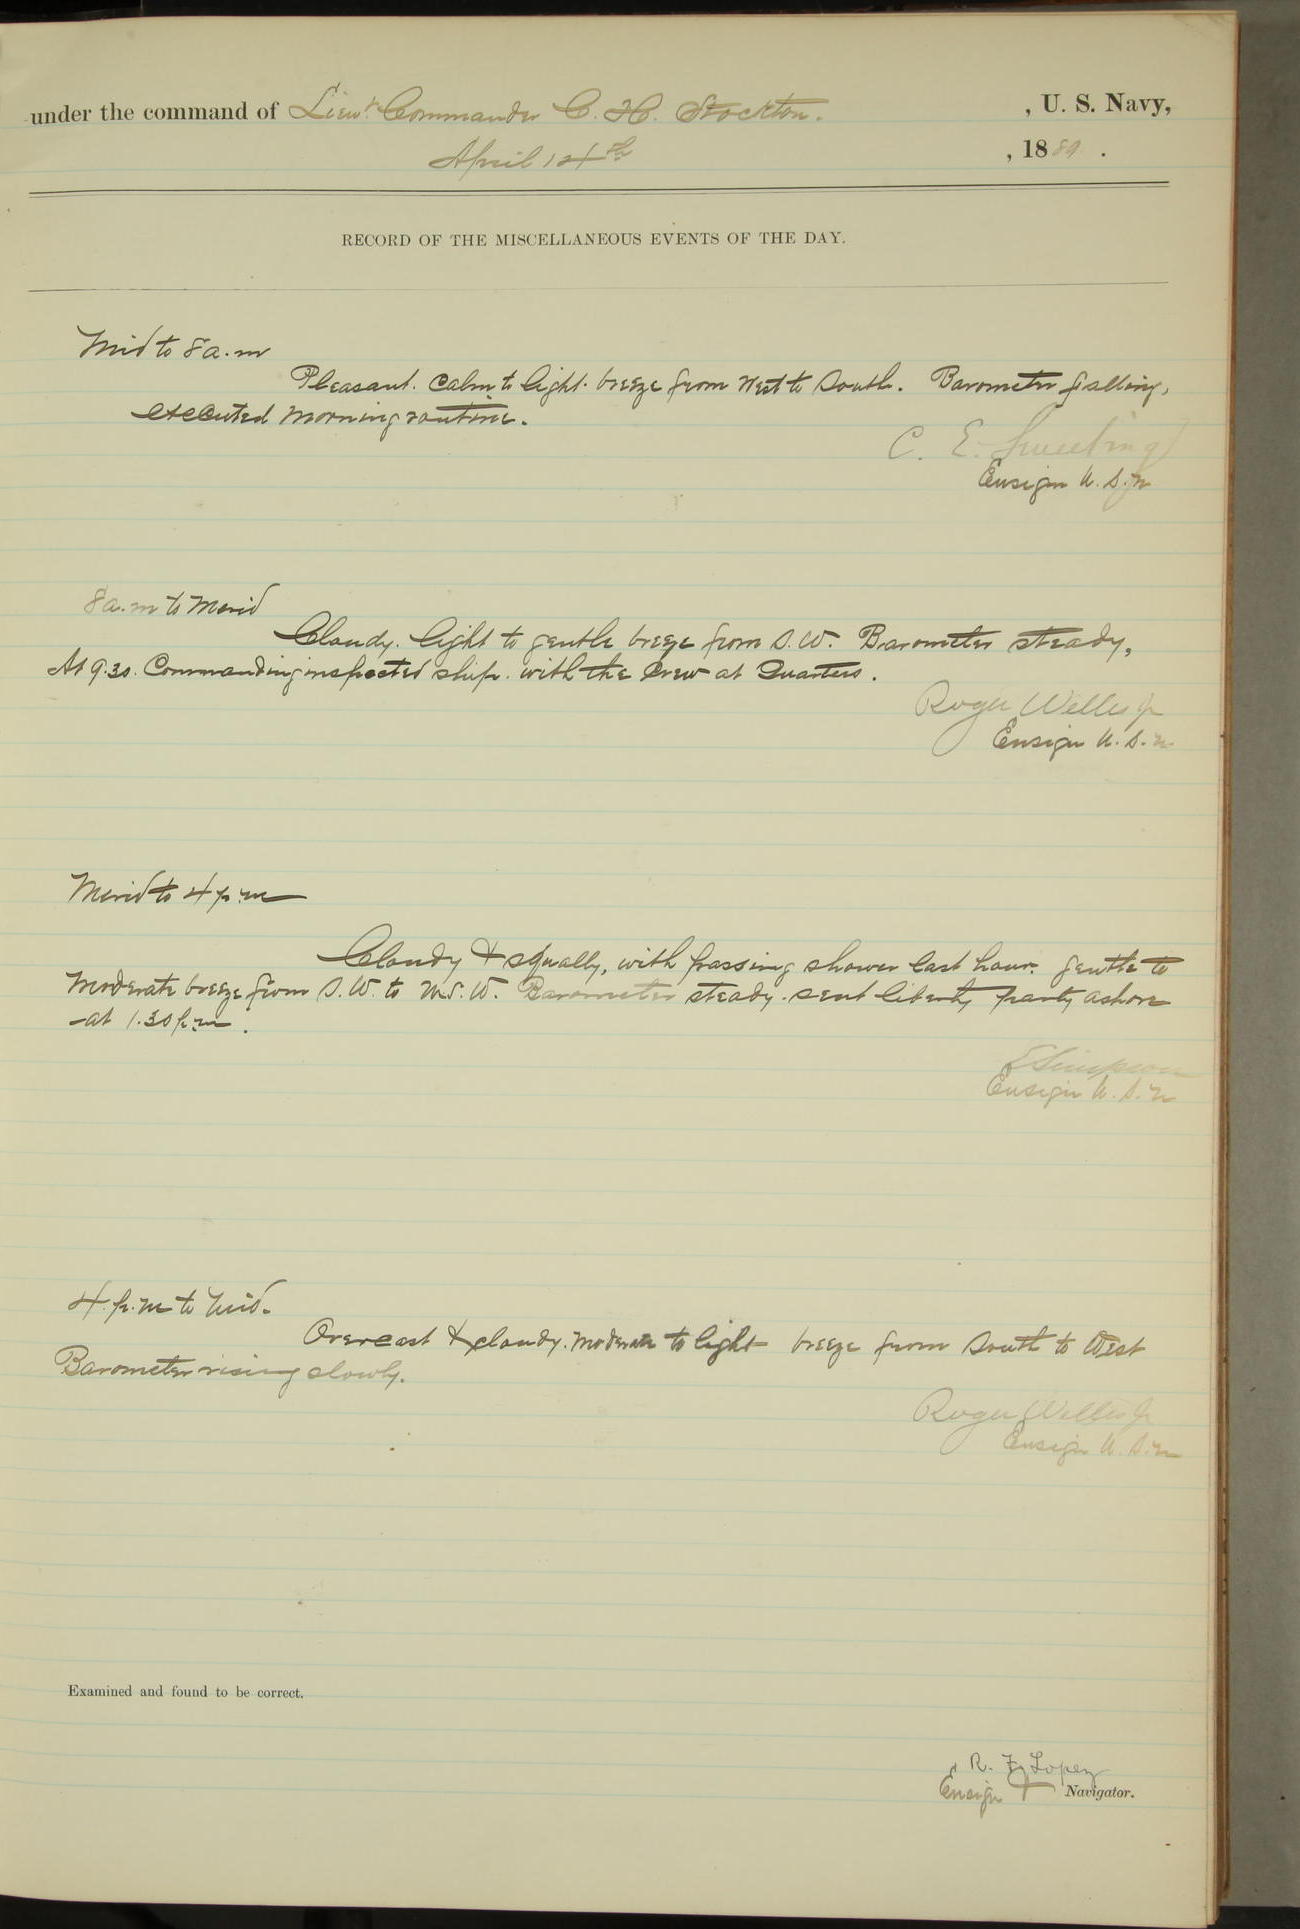 under the command of Lieut. Commander C. H. Stockton. , U. S. Navy,
April 14th , 1889 .
RECORD OF THE MISCELLANEOUS EVENTS OF THE DAY.
Mid to 8 a.m
Pleasant. Calm to light breeze from West to South. Barometer falling,
executed morning routine.
C. E. Sweeting
Ensign U.S.N
8 a.m to Merid
Cloudy. light to gentle breeze from S.W. Barometer steady,
At 9.30. Commanding inspected ship. with the Crew at Quarters.
Roger Welles Jr
Ensign U.S.N.
Merid to 4 p.m
Cloudy & squally, with passing shower last hour. gentle to
moderate breeze from S.W. to W.S.W. Barometer steady. sent liberty party ashore
at 1.30 p.m.
E Simpson
Ensign U.S.N
4.p.m to Mid.
Overcast & cloudy. moderate to light breeze from South to West
Barometer rising slowly.
Roger Welles Jr
Ensign U.S.N
Examined and found to be correct.
R. F. Lopez
Ensign & Navigator.